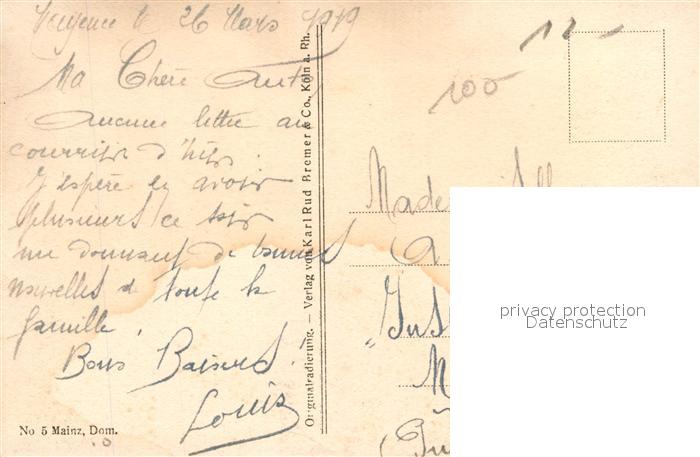 le 26 Mars 1919
Ma Chère
Aucune lettre au
courrier d'hier.
J'espère en avoir
plusieurs ce soir
me donnant de bonnes
nouvelles de toute la
famille.
Bons Baisers!
Louis
No 5 Mainz, Dom.
Originalradierung. — Verlag von Karl Rud Bremer & Co., Köln a. Rh.
12 -
100
privacy protection
Datenschutz